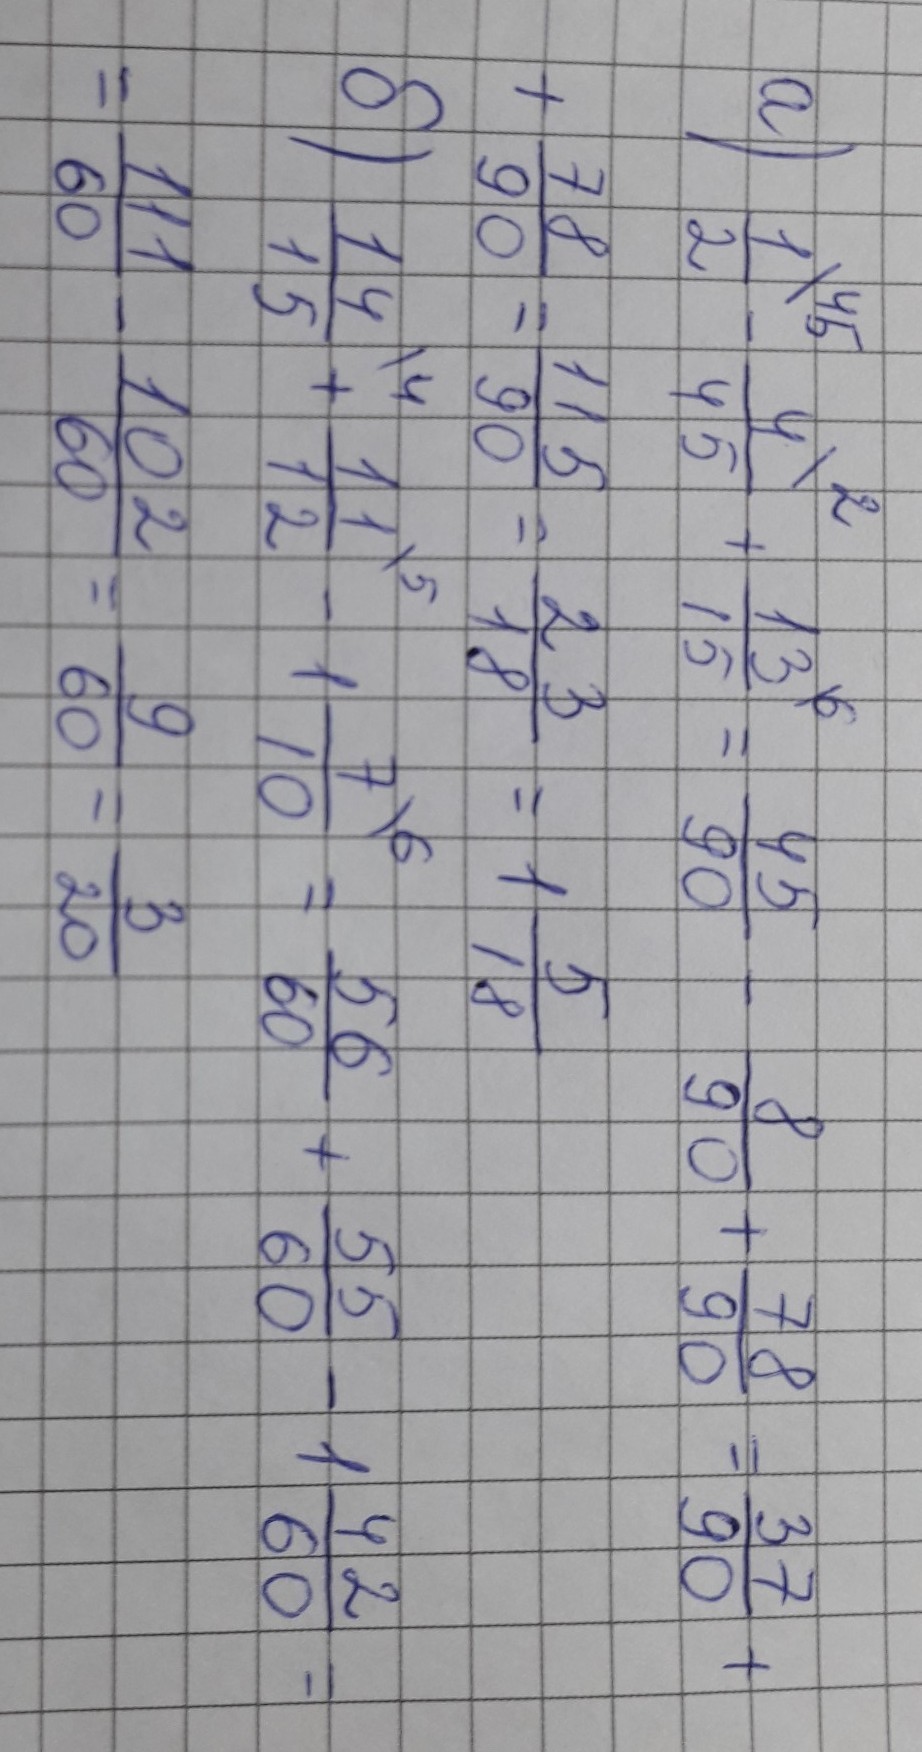 а) 1/2\45 - 4/45\2 + 13/15\6 = 45/90 - 8/90 + 78/90 = 37/90 +
+ 78/90 = 115/90 = 23/18 = 1 5/18
б) 14/15\4 + 11/12\5 - 1 7/10\6 = 56/60 + 55/60 - 1 42/60 =
= 111/60 - 102/60 = 9/60 = 3/20